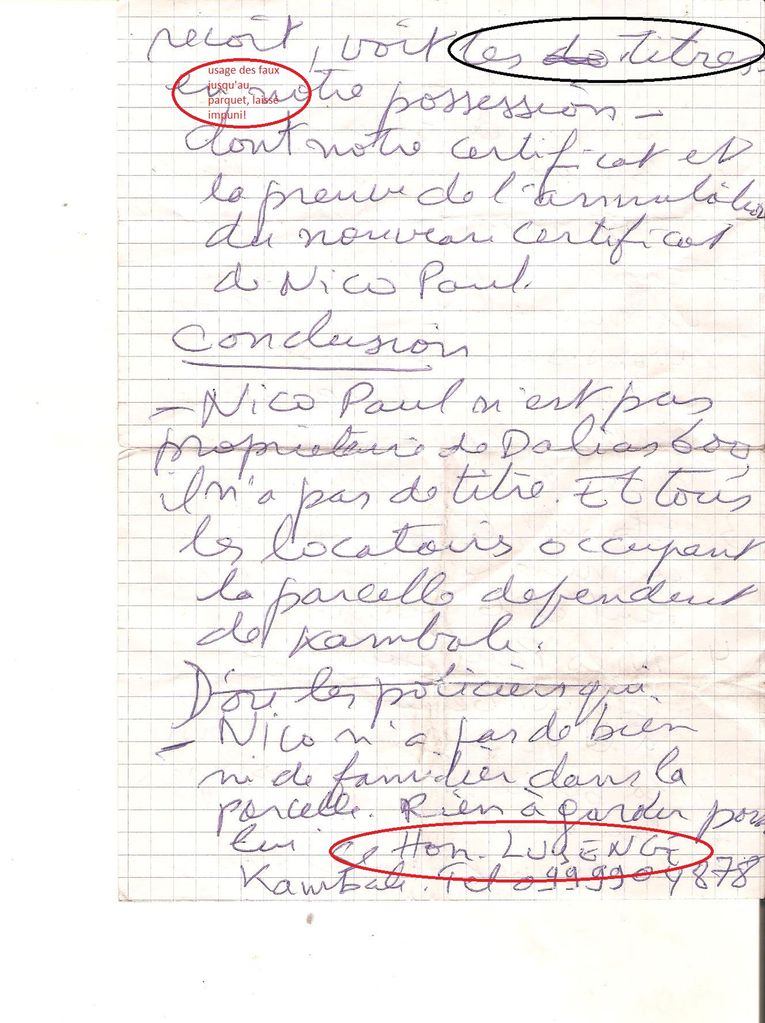 recoit, voit les de titres
en notre possession -
usage des faux
jusqu'au
parquet, laissé
impuni!
dont notre certificat et
la preuve de l'annulation
du nouveau certificat
de Nico Paul.
Conclusion
- Nico Paul n'est pas
proprietaire de Dalias 600,
il n'a pas de titre. Et tous
les locatairs occupant
la parcelle dependent
de Kambale.
D'ou les policièrs qui
- Nico n'a pas de bien
ni de familier dans la
parcelle. Rien à garder pour
lui Hon. LUSENGE
Kambale. Tel 0999904878